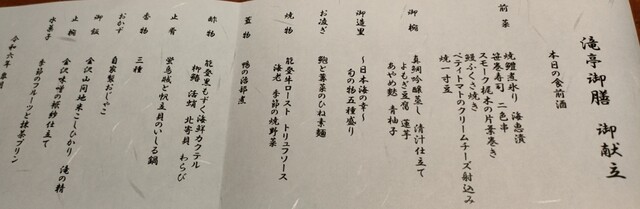 滝亭御膳 御献立
本日の食前酒
前菜
焼鱧煮氷り 海恵漬
笹巻寿司 二色串
スモーク梶木の片葉巻き
鰻ふくさ焼き
ペティトマトのクリームチーズ射込み
焼一寸豆
御椀
真鯛吟醸蒸し 清汁仕立て
よもぎ豆腐 蓮芋
あやめ麩 青柚子
御造里
～日本海の幸～
旬の物五種盛り
お凌ぎ
鮑と蓴菜のひね素麺
焼物
能登牛ロースト トリュフソース
海老 季節の焼野菜
蓋物
鴨の治部煮
酢物
能登里もずく海鮮カクテル
柳鰆 活蛸 北寄貝 わらび
止肴
蛍烏賊と帆立貝のいしる鍋
香物
三種
おかず
自家製おじゃこ
御飯
金沢山間地米こしひかり 滝の精
止椀
金沢味噌の袱紗仕立て
水菓子
季節のフルーツと抹茶プリン
令和六年 皐月